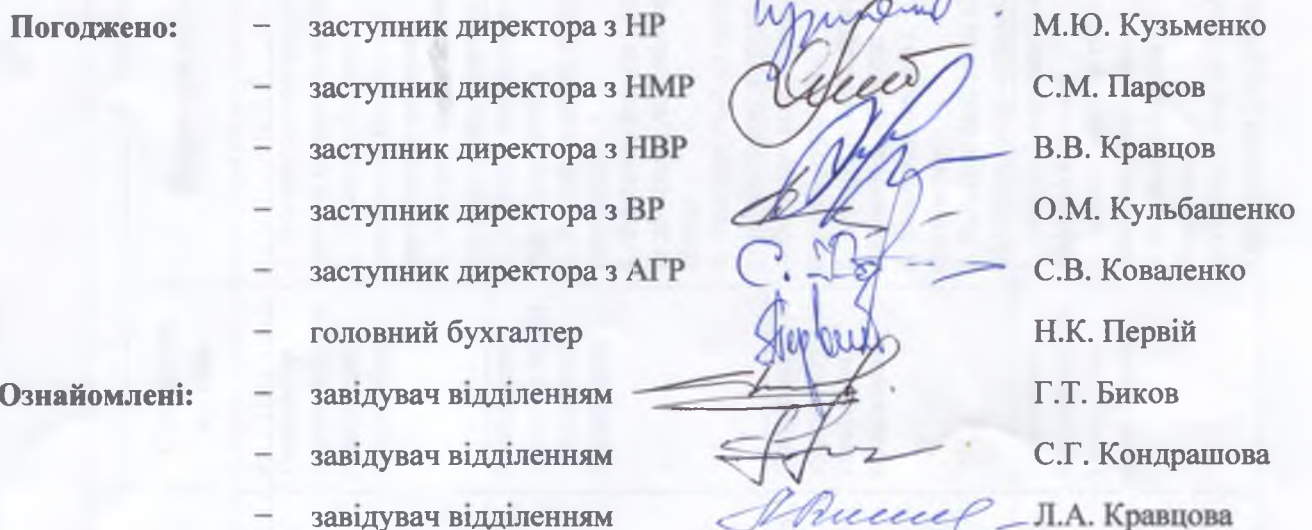 Погоджено: – заступник директора з НР М.Ю. Кузьменко
– заступник директора з НМР С.М. Парсов
– заступник директора з НВР В.В. Кравцов
– заступник директора з ВР О.М. Кульбашенко
– заступник директора з АГР С.В. Коваленко
– головний бухгалтер Н.К. Первій
Ознайомлені: – завідувач відділенням Г.Т. Биков
– завідувач відділенням С.Г. Кондрашова
– завідувач відділенням Л.А. Кравцова